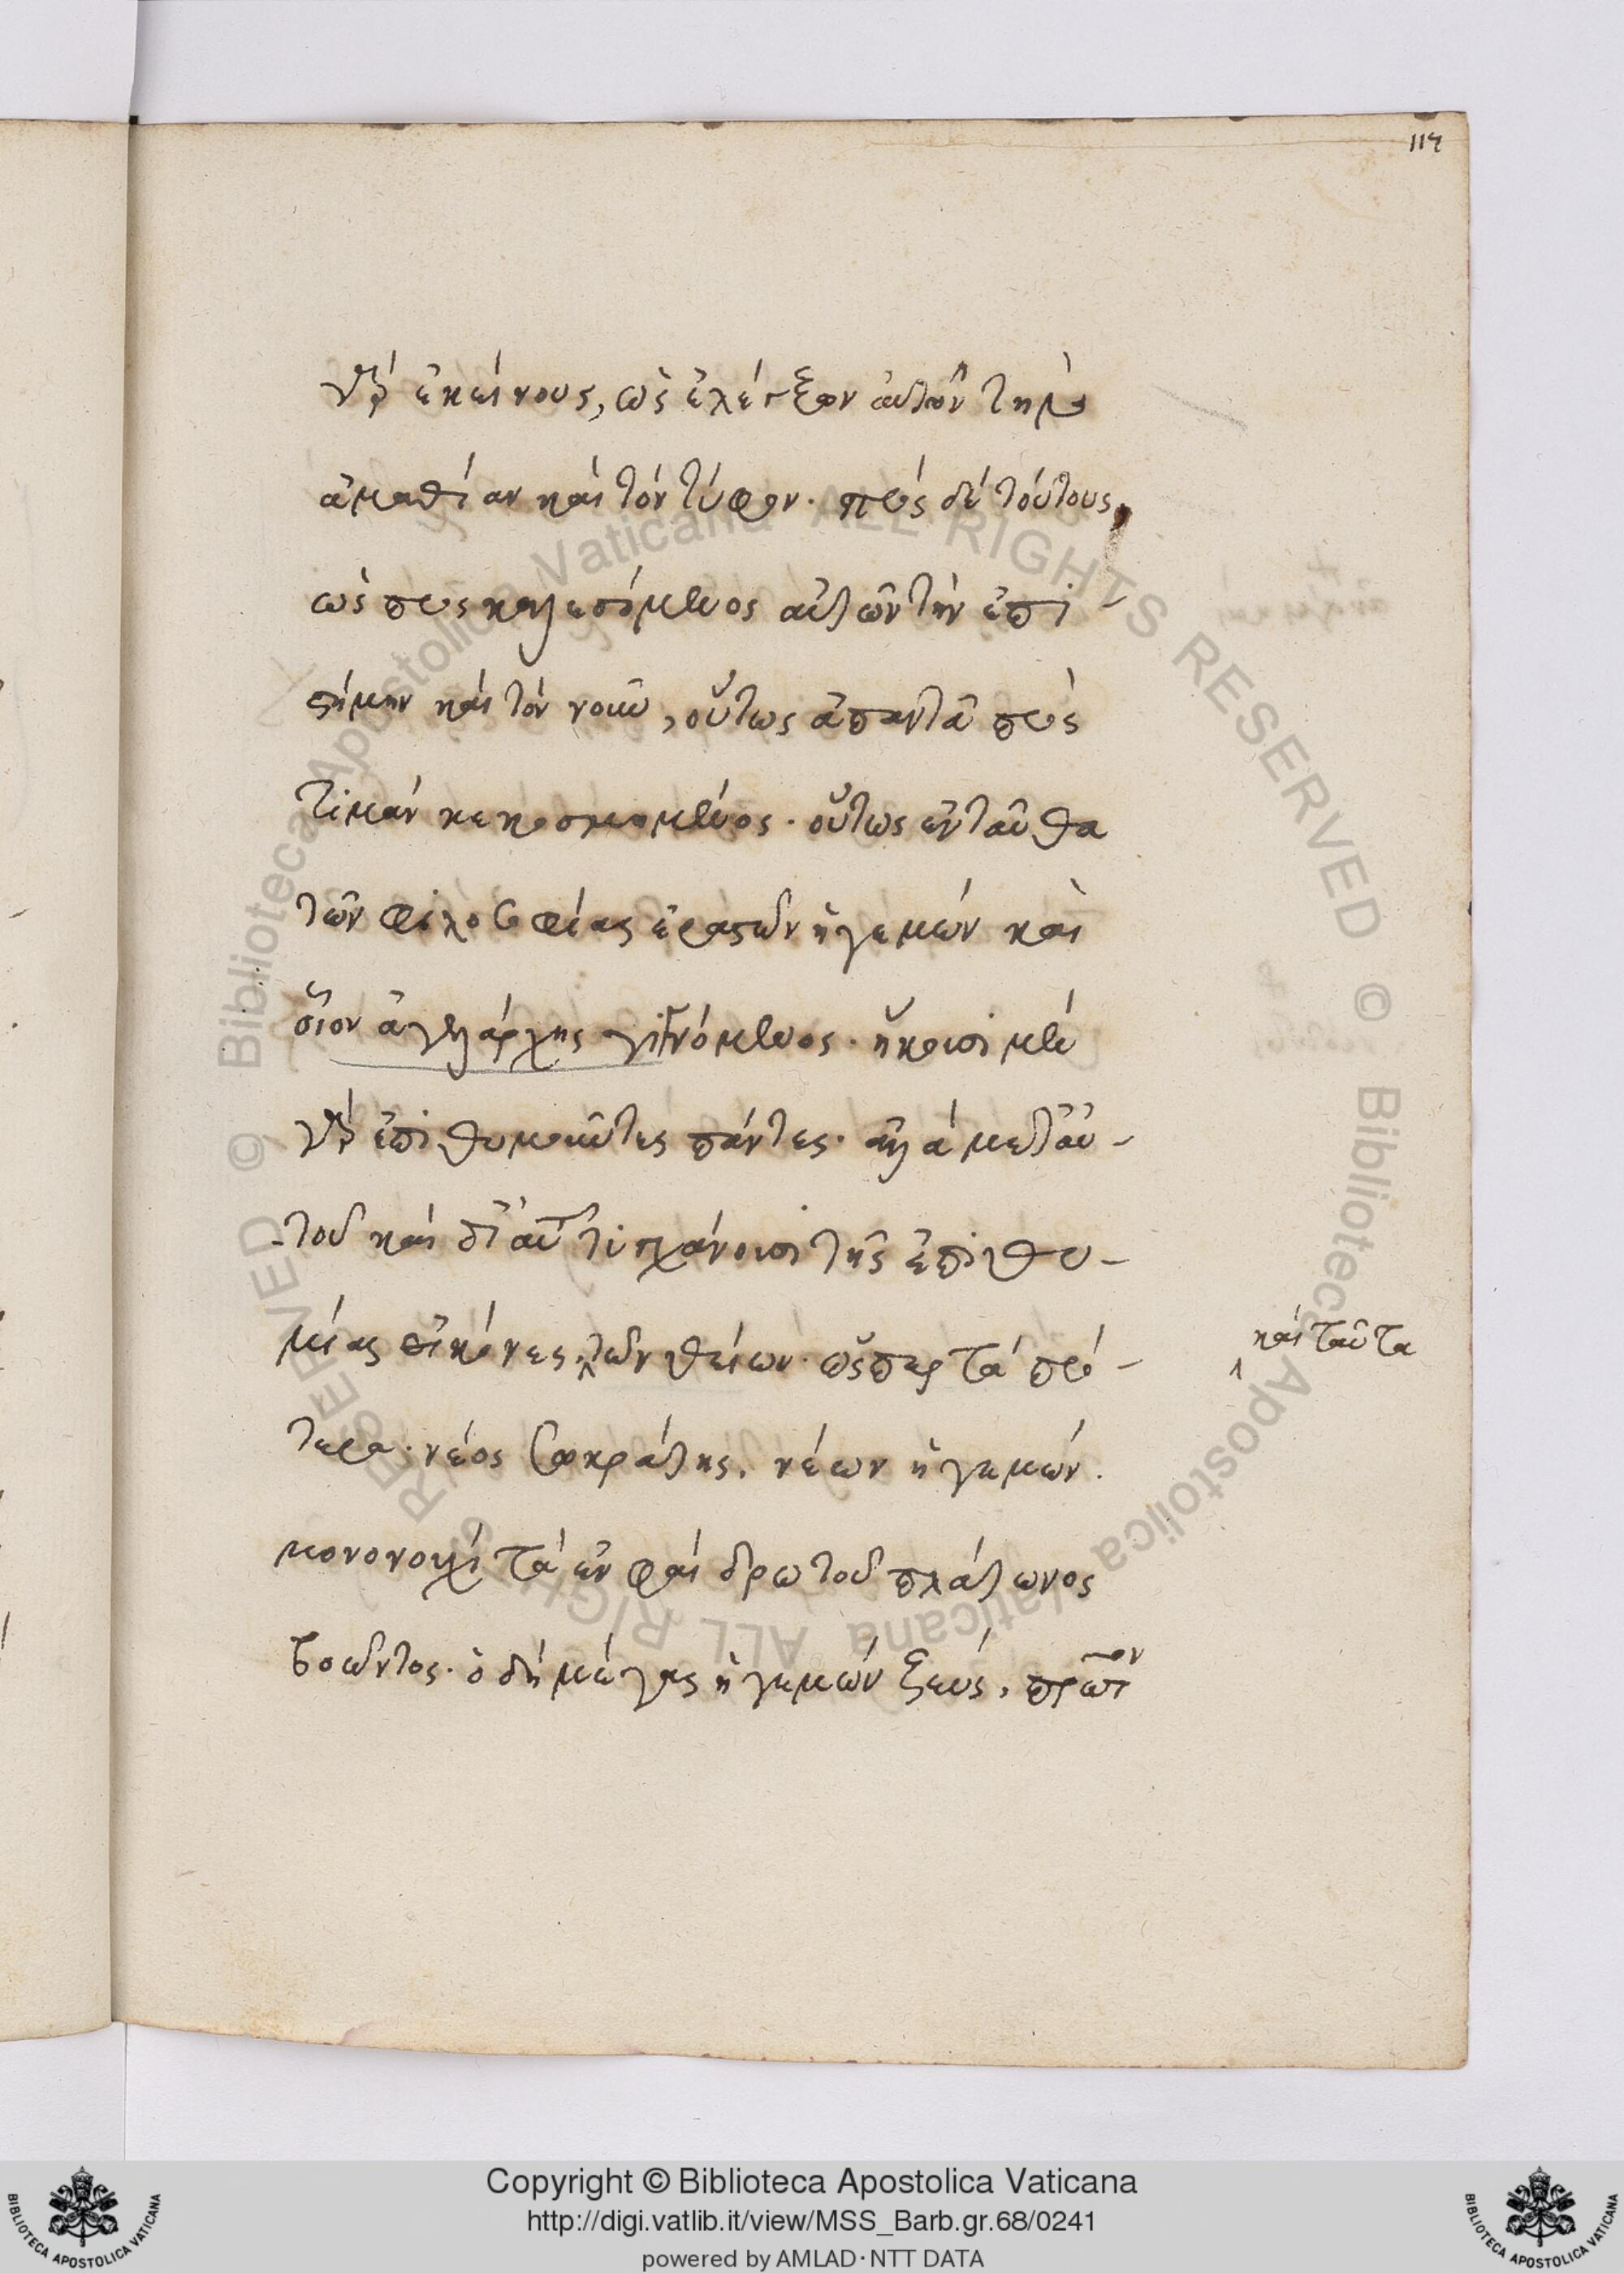 114
γὰρ ἐκείνους, ὡς ἐλέγξων αὐτῶν τὴν
ἀμαθίαν καὶ τὸν τύφον· πρὸς δὲ τούτους,
ὡς προσκαλεσόμενος αὐτῶν τὴν ἐπι-
στήμην καὶ τὸν νοῦν, οὕτως ἀπαντᾶ πρὸς
τιμὰν κεκοσμημένος· οὕτως ἐνταῦθα
τῶν φιλοσοφίας ἐραστῶν ἡγεμὼν καὶ
οἷον ἀγελάρχης γιγνόμενος· ἥκουσι μὲν
γὰρ ἐπιθυμοῦντες πάντες· ἀλλὰ μετ' αὐ-
τοῦ καὶ δι' αὐτοῦ τυγχάνουσι τῆς ἐπιθυ-
μίας εἰκόνες τῶν θείων· ὥσπερ τὰ πρό-
καὶ ταῦτα
τερα· νέος Σωκράτης, νέων ἡγεμών.
μονονουχὶ τὰ ἐν φαίδρω τοῦ πλάτωνος
βοῶντος· ὁ δὴ μέγας ἡγεμὼν ζεύς, πρῶτον
Copyright © Biblioteca Apostolica Vaticana
http://digi.vatlib.it/view/MSS_Barb.gr.68/0241
powered by AMLAD·NTT DATA
BIBLIOTECA APOSTOLICA VATICANA
BIBLIOTECA APOSTOLICA VATICANA
© Biblioteca Apostolica Vaticana ALL RIGHTS RESERVED © Biblioteca Apostolica Vaticana ALL RIGHTS RESERVED